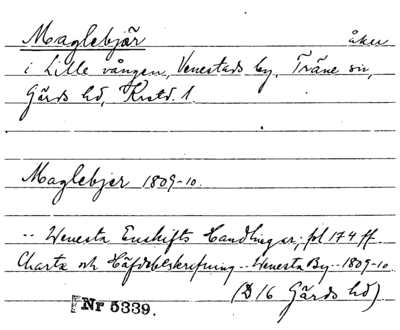 Maglebjär åker
i Lille vången, Venestads by, Träne sn,
Gärds hd, Krstd. l.
Maglebjer 1809-10.
-- Wenesta Enskifts Handlingar; fol 174 ff.
Charta och Häfdebeskrifning -- Wenesta By -- 1809-10
(D 16 Gärds hd)
Nr 5339.